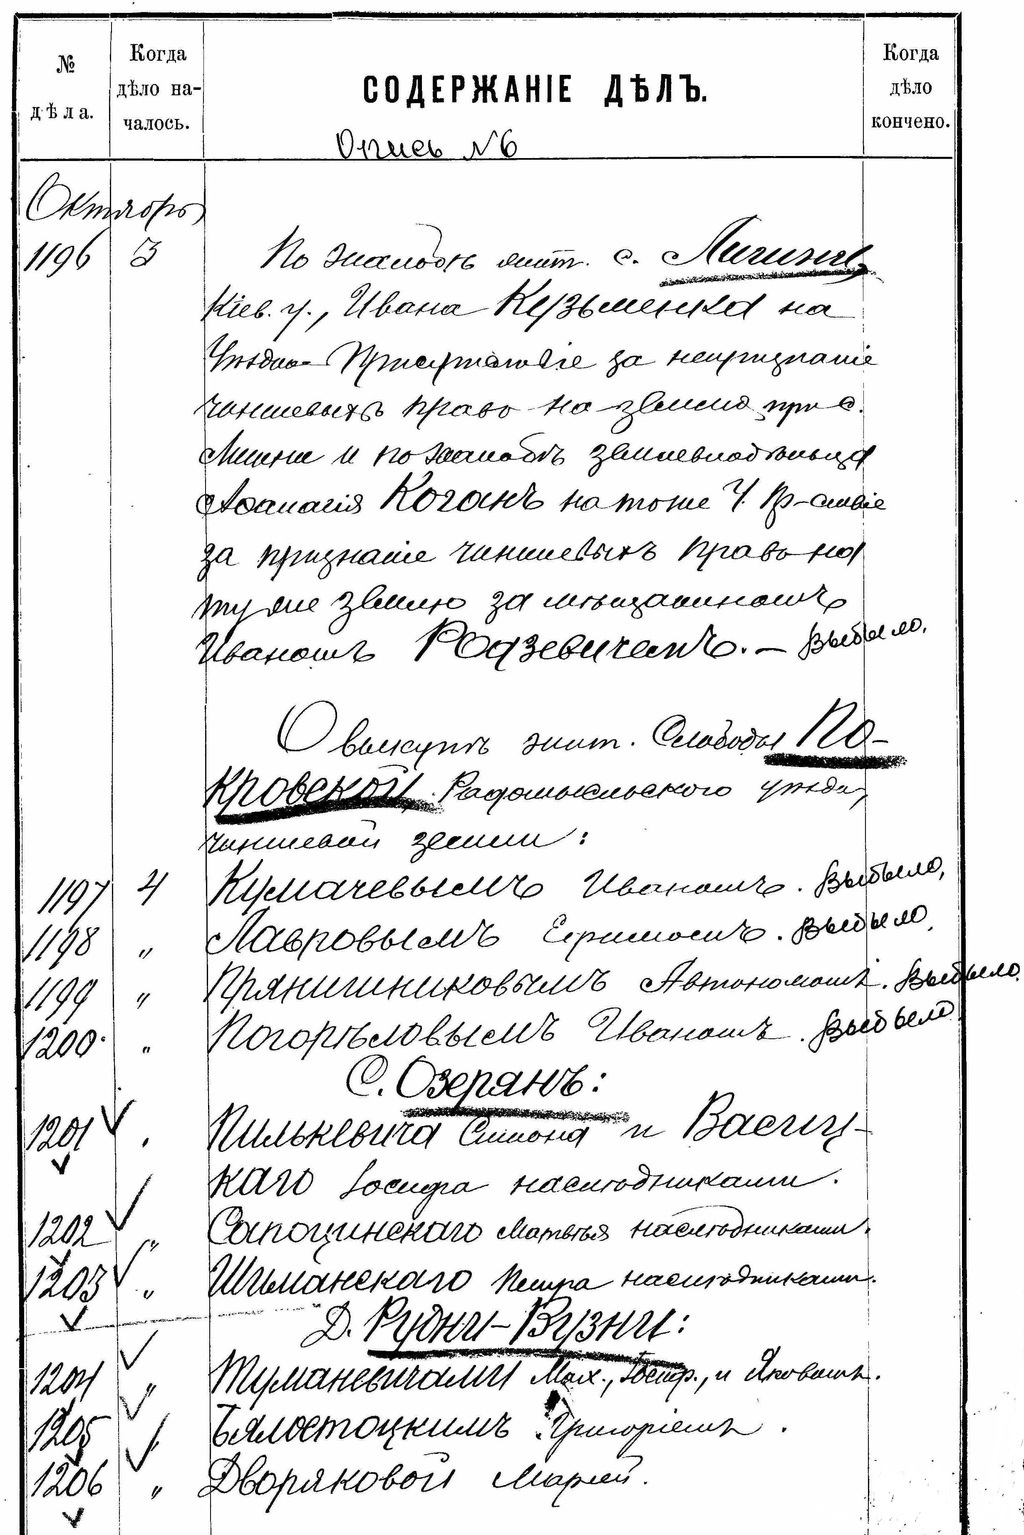 № дѣла.
Когда дѣло началось.
СОДЕРЖАНІЕ ДѢЛЪ.
Когда дѣло кончено.
Опись №6
Октябрь
1196 3 По жалобѣ жит. с.
Кіев. у., Ивана Кузьменка на
Уѣздн. Присутствіе за непризнаніе
чиншевыхъ право на землю при с.
и по жалобѣ землевладѣльца
Аѳанасія Коганъ на тоже У. Пр-ствіе
за признаніе чиншевыхъ право на
ту же землю за мѣщаниномъ
Иваномъ Родзевичемъ. – Выбыло.
О выкупѣ жит. Слободы По-
кровской Радомысльского уѣзда,
чиншевой земли:
1197 4 Кумачевымъ Иваномъ. Выбыло,
1198 „ Лавровымъ Ефимомъ. Выбыло,
1199 „ Прянишниковымъ Автономомъ. Выбыло.
1200 „ Погорѣловымъ Иваномъ. Выбыло
С. Озерянъ:
1201 „ Пилькевича Симона и Васиц-
каго Іосифа наслѣдниками.
1202 „ Сапощинскаго Матвѣя наслѣдниками.
1203 „ Шиманскаго Петра наслѣдниками.
Д. Рудни-Вузни:
1204 „ Туманевичами Мах., Іосиф., и Яковомъ.
1205 „ Бялостоцкимъ Григоріемъ.
1206 „ Дворяковой Маріей.